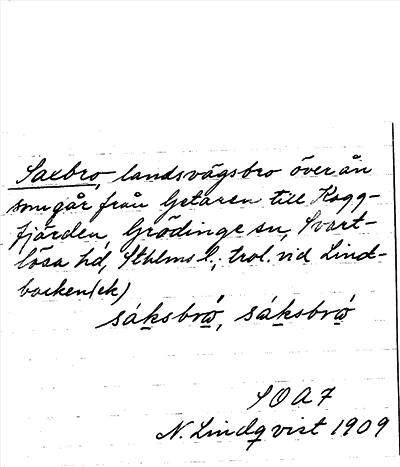 Saxbro, landsvägsbro över ån
som går från Getaren till Kagg-
fjärden, Grödinge sn, Svart-
lösa hd, Sthlms l.; trol. vid Lind-
backen(ek)
sáksbrω̄, sáksbrώ
SOAF
N. Lindqvist 1909